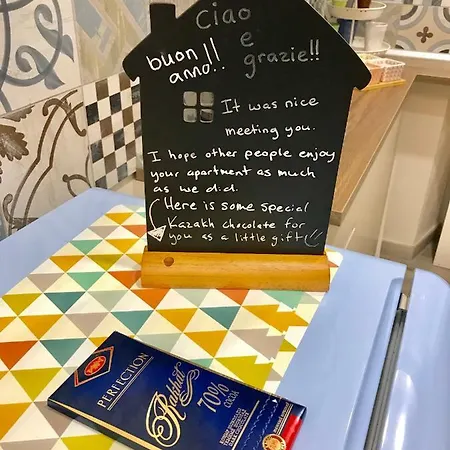 Ciao
e
grazie!!
buon
anno!!
It was nice
meeting you.
I hope other people enjoy
your apartment as much
as we did.
Here is some special
Kazakh chocolate for
you as a little gift
PERFECTION
Rakhat
70%
COCOA